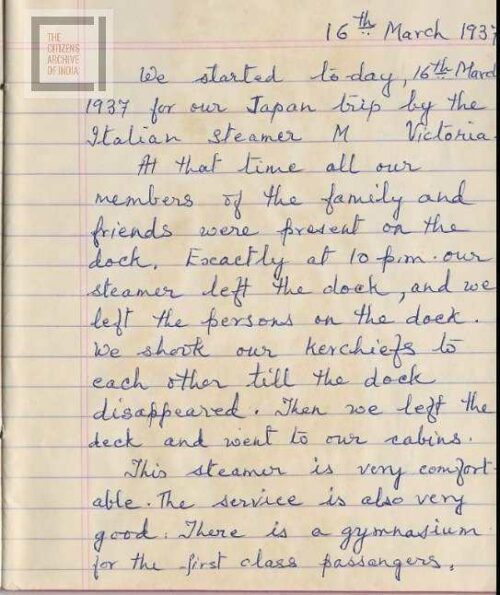 THE
CITIZENS
ARCHIVE
OF INDIA
16th March 1937
We started to-day, 16th March
1937 for our Japan trip by the
Italian steamer M Victoria
At that time all our
members of the family and
friends were present on the
dock. Excactly at 10 p.m. our
steamer left the dock, and we
left the persons on the dock.
We shook our kerchiefs to
each other till the dock
disappeared. Then we left the
deck and went to our cabins.
This steamer is very comfort-
able. The service is also very
good. There is a gymnasium
for the first class passengers.